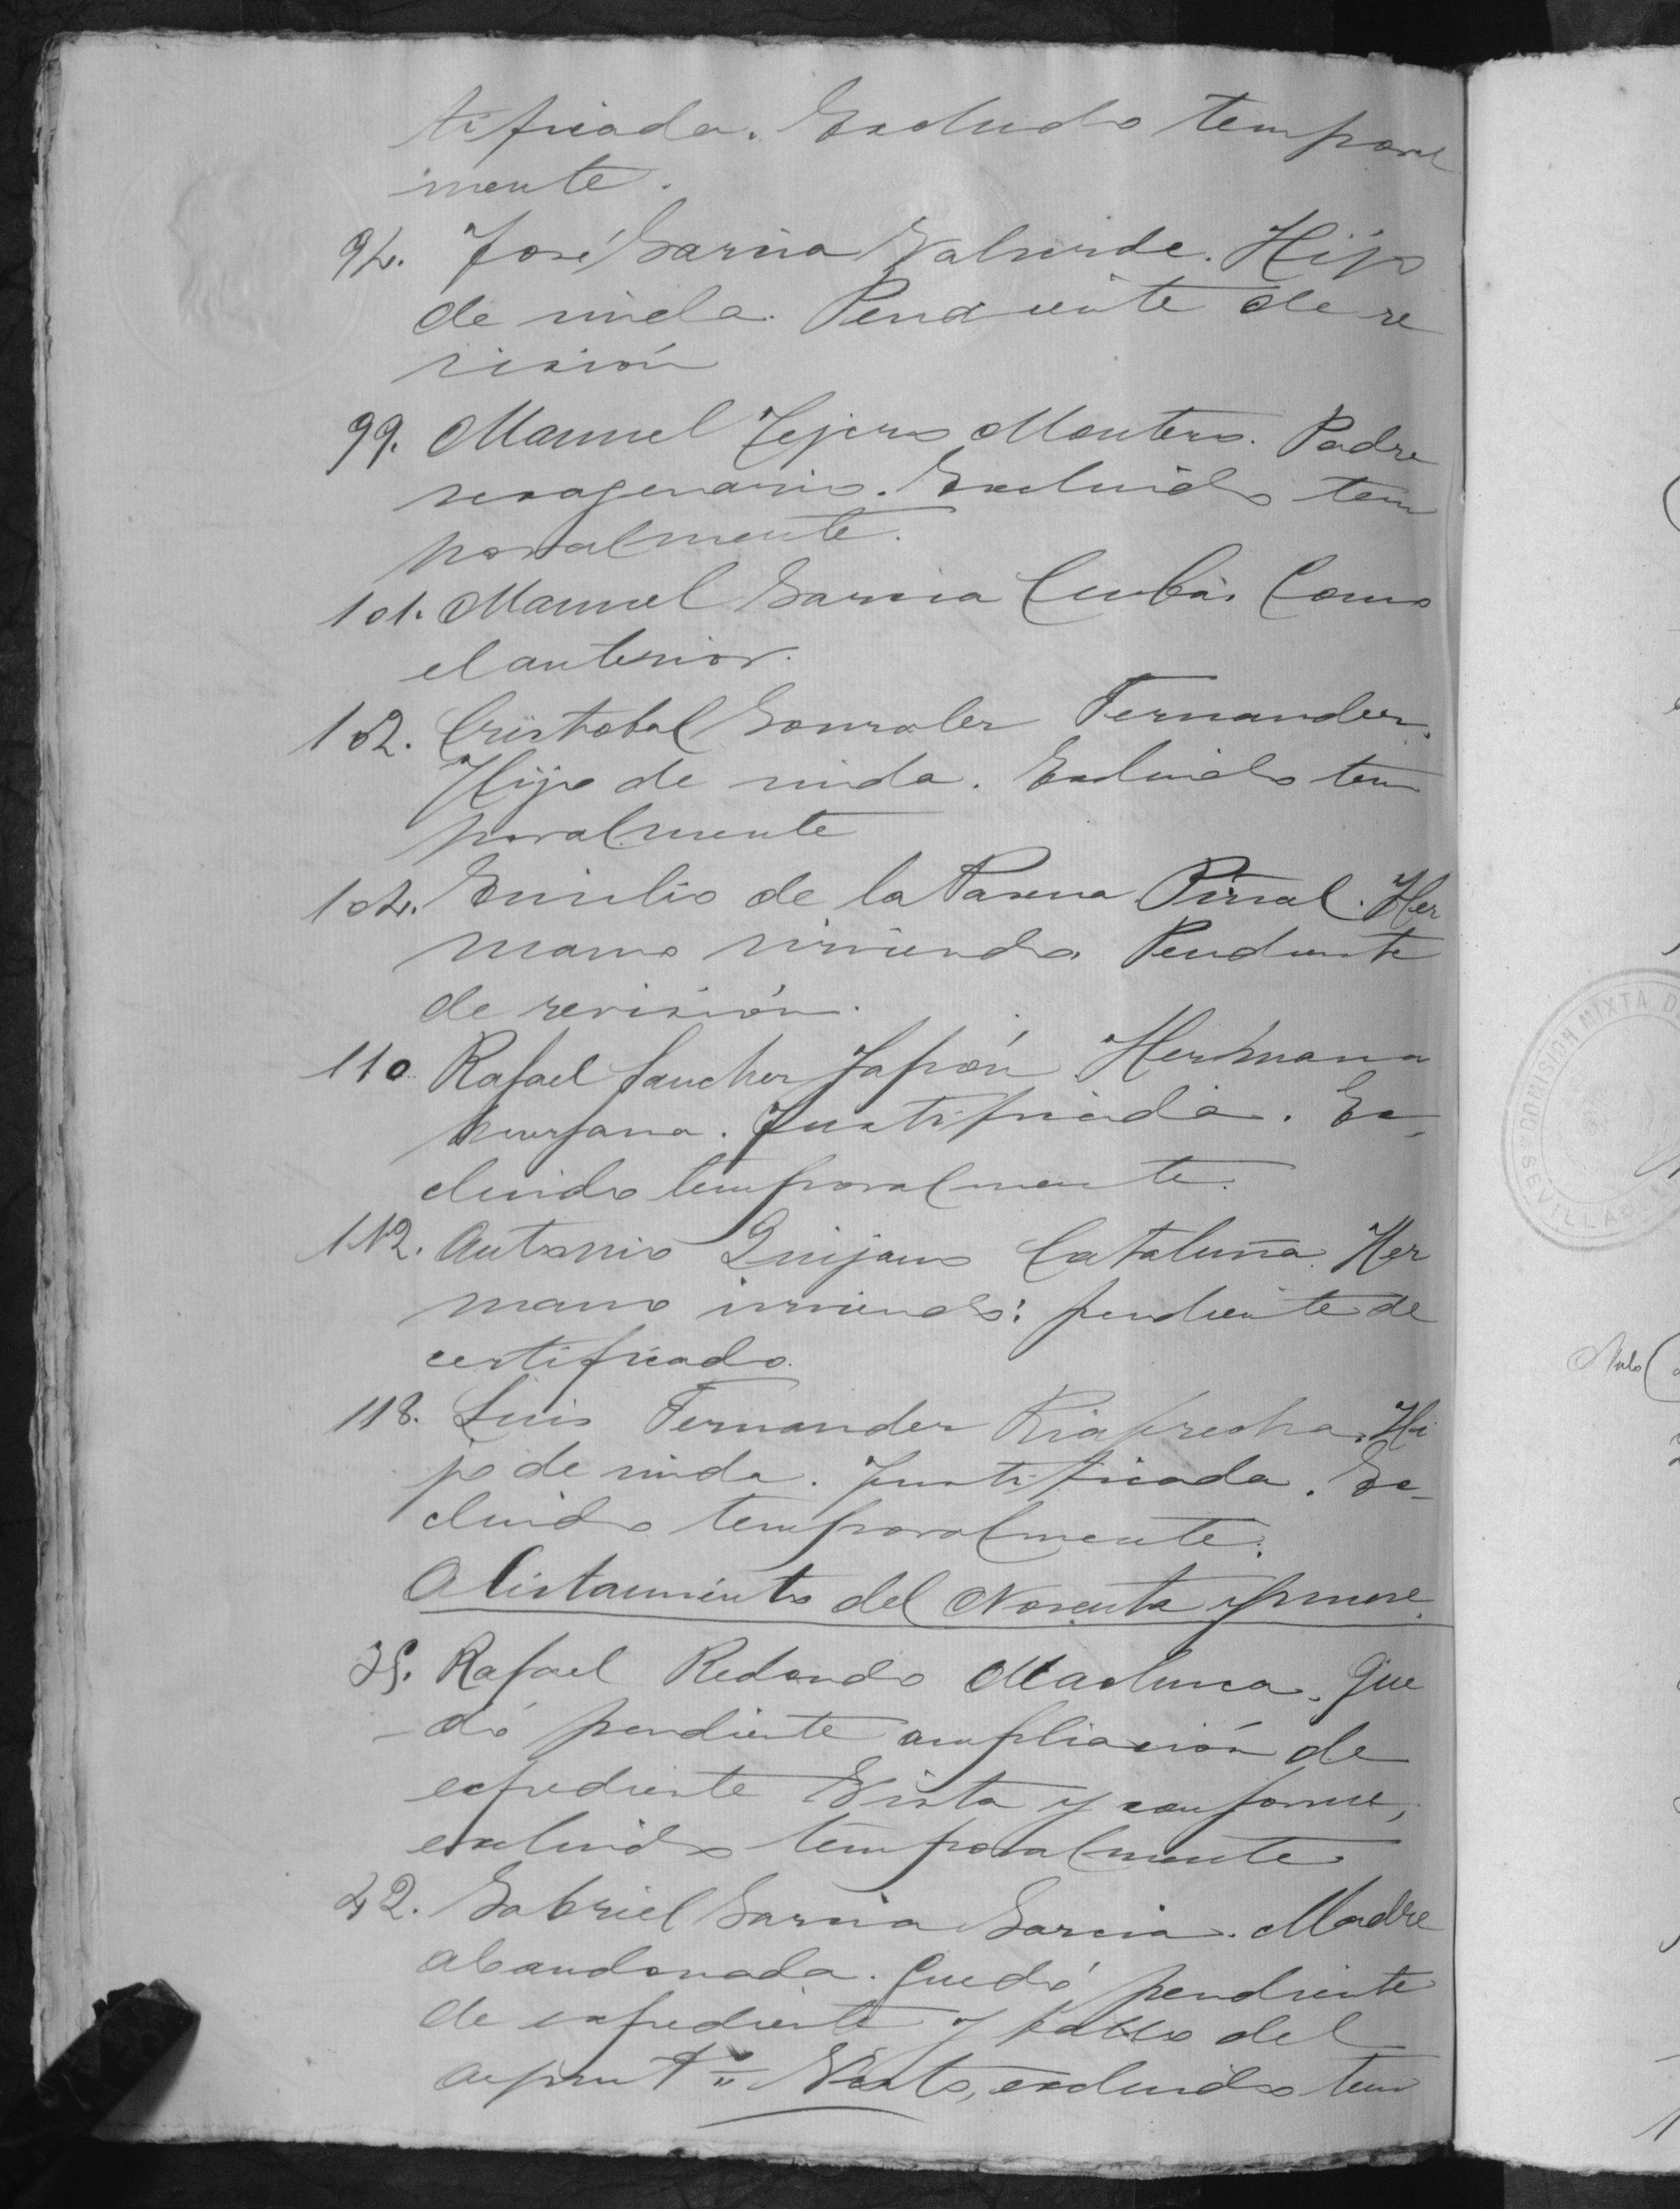 tificada. Excluido temporal
mente.
94. José Garcia Valverde. Hijo
de viuda. Pendiente de re
vision
99. Manuel Tejero Montero. Padre
sexagenario. Excluido tem
poralmente.
101. Manuel Garcia Cubas. Como
el anterior.
102. Cristobal Gonzalez Fernandez.
Hijo de viuda. Excluido tem
poralmente
104. Emilio de la Pirral. Her
mano sirviendo. Pendiente
de revisión.
110 Rafael Sanchez Japón Hermana
huerfana. Justificada. Ex-
cluido temporalmente.
112. Antonio Quijano Cataluña. Her
mano sirviendo: pendiente de
certificado.
118. Luis Fernandez Riafrecha. Hi
jo de viuda. Justificada. Ex-
cluido temporalmente.
Alistamiento del Noventa y nueve.
35. Rafael Redondo Que
dó pendiente ampliación de
expediente Vista y conforme,
excluido temporalmente
42. Gabriel Garcia Garcia. Madre
abandonada. Quedó pendiente
de expediente y fallo del
Ayunt.º Visto, excluido tem
COMISION MIXTA D
SEVILLA